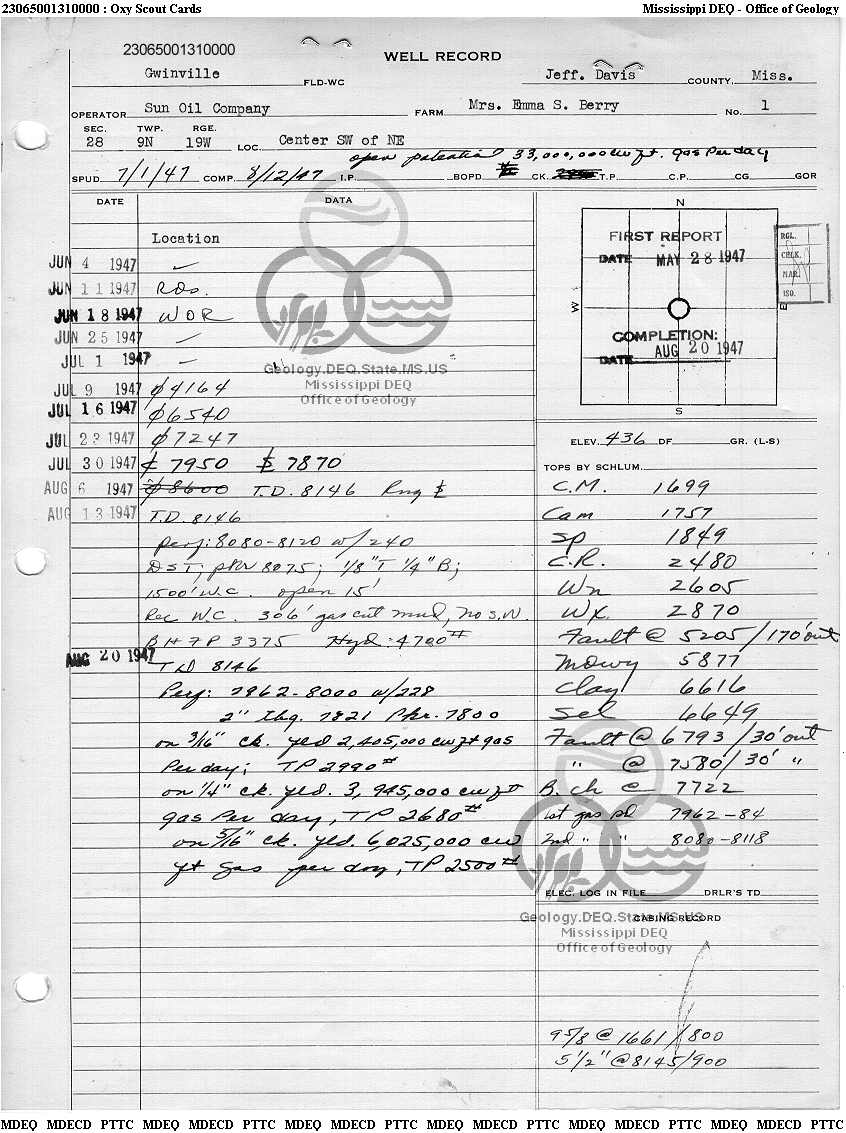 23065001310000 : Oxy Scout Cards
Mississippi DEQ - Office of Geology
23065001310000
WELL RECORD
Gwinville FLD-WC Jeff. Davis COUNTY, Miss.
OPERATOR Sun Oil Company FARM Mrs. Emma S. Berry No. 1
SEC. TWP. RGE.
28 9N 19W LOC. Center SW of NE
open potential 33,000,000 cu ft. gas Per day
SPUD 7/1/47 COMP. 8/12/47 I.P. BOPD CK. T.P. C.P. CG GOR
DATE DATA
Location
JUN 4 1947 -
JUN 11 1947 RDS.
JUN 18 1947 WOR
JUN 25 1947 -
JUL 1 1947 -
JUL 9 1947 ₵4164
JUL 16 1947 ₵6540
JUL 23 1947 ₵7247
JUL 30 1947 ₵ 7950 7870
AUG 6 1947 ₵8600 T.D. 8146 Rng
AUG 13 1947 T.D. 8146
perf: 8080-8120 w/240
DST, pkr 8075; 1/8" T 1/4" B;
1500' W.C. open 15'
Rec W.C. 306' gas cut mud, no S.W.
BHFP 3375 Hyd: 4700#
AUG 20 1947 TD 8146
Perf: 7962-8000 w/228
2" tbg. 7821 Pkr. 7800
on 3/16" ck. yld 2,405,000 cu ft gas
Per day; TP 2990#
on 1/4" ck. yld. 3,945,000 cu ft
gas Per day, TP 2680#
on 5/16" ck. yld. 6,025,000 cu
ft gas per day, TP 2500#
N
FIRST REPORT
DATE MAY 28 1947
W E
COMPLETION:
DATE AUG 20 1947
S
RGL.
CHLK.
MAR.
ISO.
ELEV. 436 DF GR. (L-S)
TOPS BY SCHLUM.
C.M. 1699
Cam 1757
Sp 1849
C.R. 2480
Wn 2605
Wx. 2870
Fault @ 5205/170' out
Mdwy 5877
Clay 6616
Sel 6649
Fault @ 6793/30' out
" @ 7580/30' "
B. ch @ 7722
1st gas sd 7962-84
2nd " " 8080-8118
ELEC. LOG IN FILE DRLR'S TD
CASING RECORD
9 5/8 @ 1661/800
5 1/2" @ 8145/900
Geology.DEQ.State.MS.US
Mississippi DEQ
Office of Geology
Geology.DEQ.State.MS.US
Mississippi DEQ
Office of Geology
MDEQ MDECD PTTC MDEQ MDECD PTTC MDEQ MDECD PTTC MDEQ MDECD PTTC MDEQ MDECD PTTC MDEQ MDECD PTTC